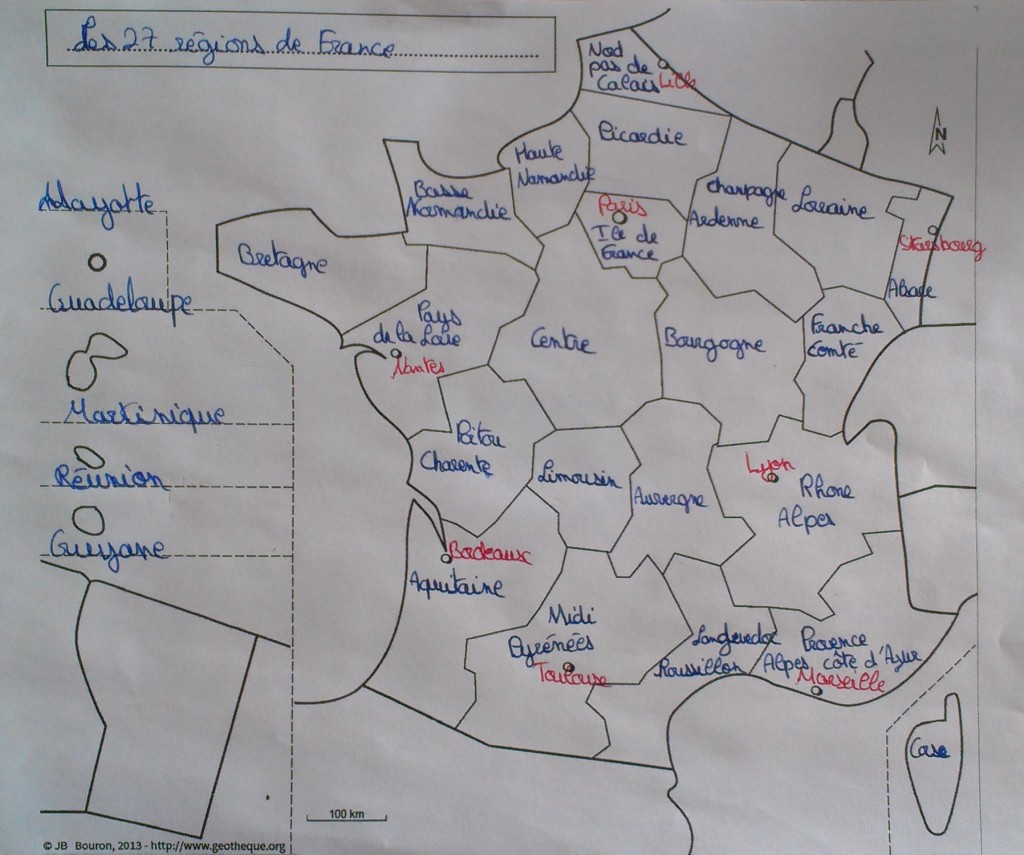 Les 27 régions de France
Nord
pas de
Calais
Lille
N
Picardie
Haute
Normandie
Basse
Normandie
Champagne
Ardenne
Lorraine
Mayotte
Paris
Ile de
France
Strasbourg
Bretagne
Alsace
Guadeloupe
Pays
de la Loire
Nantes
Centre
Bourgogne
Franche
Comté
Martinique
Poitou
Charente
Limousin
Auvergne
Lyon
Rhone
Alpes
Réunion
Guyane
Bordeaux
Aquitaine
Midi
Pyrénées
Toulouse
Languedoc
Roussillon
Provence
Alpes côte d'Azur
Marseille
Corse
100 km
© JB Bouron, 2013 - http://www.geotheque.org